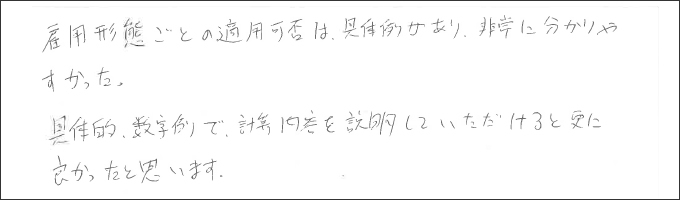 雇用形態ごとの適用可否は、具体例があり、非常に分かりや
すかった。
具体的、数字例で、計算内容を説明していただけると更に
良かったと思います。